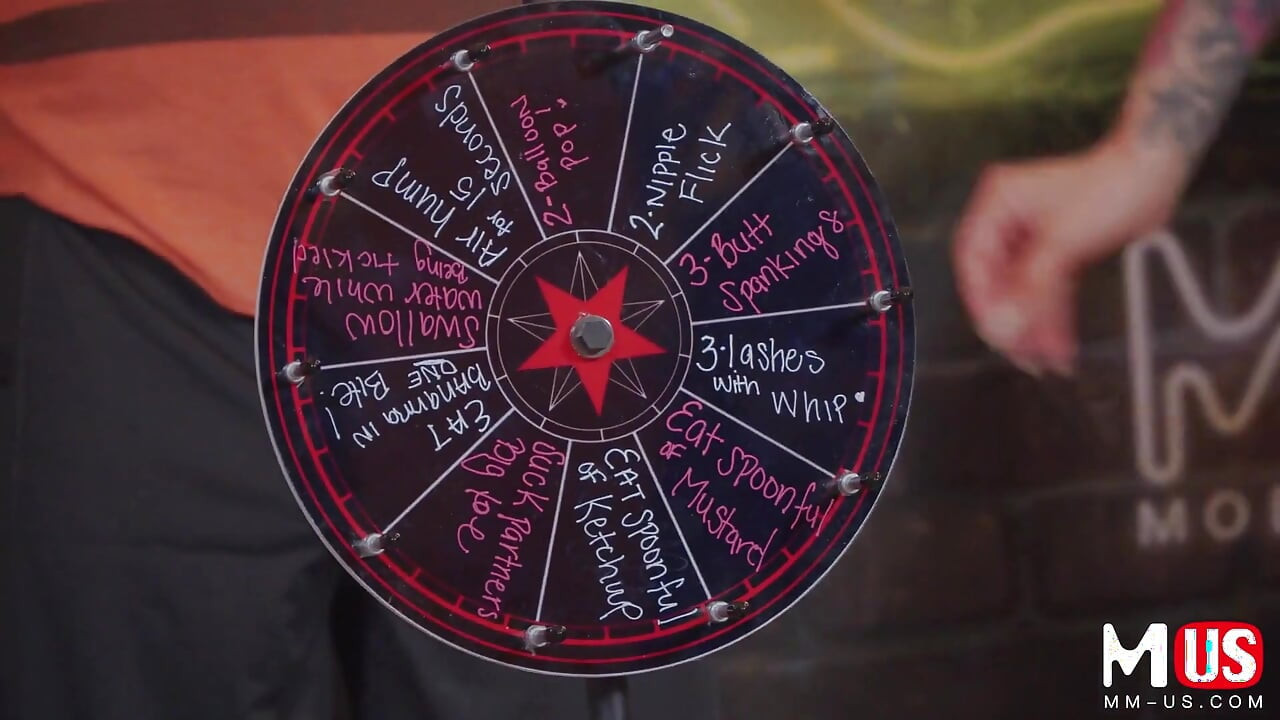 2-Balloon
Pop!
2-Nipple
Flick
3-Butt
Spankings
3-lashes
with
Whip
Eat spoonful
of
Mustard
EAT spoonful
of Ketchup
Suck Partners
Big toe
EAT
bananna IN
ONE Bite!
Swallow
water while
being tickled
Air hump
for 15
Seconds
M
MO
MUS
MM-US.COM